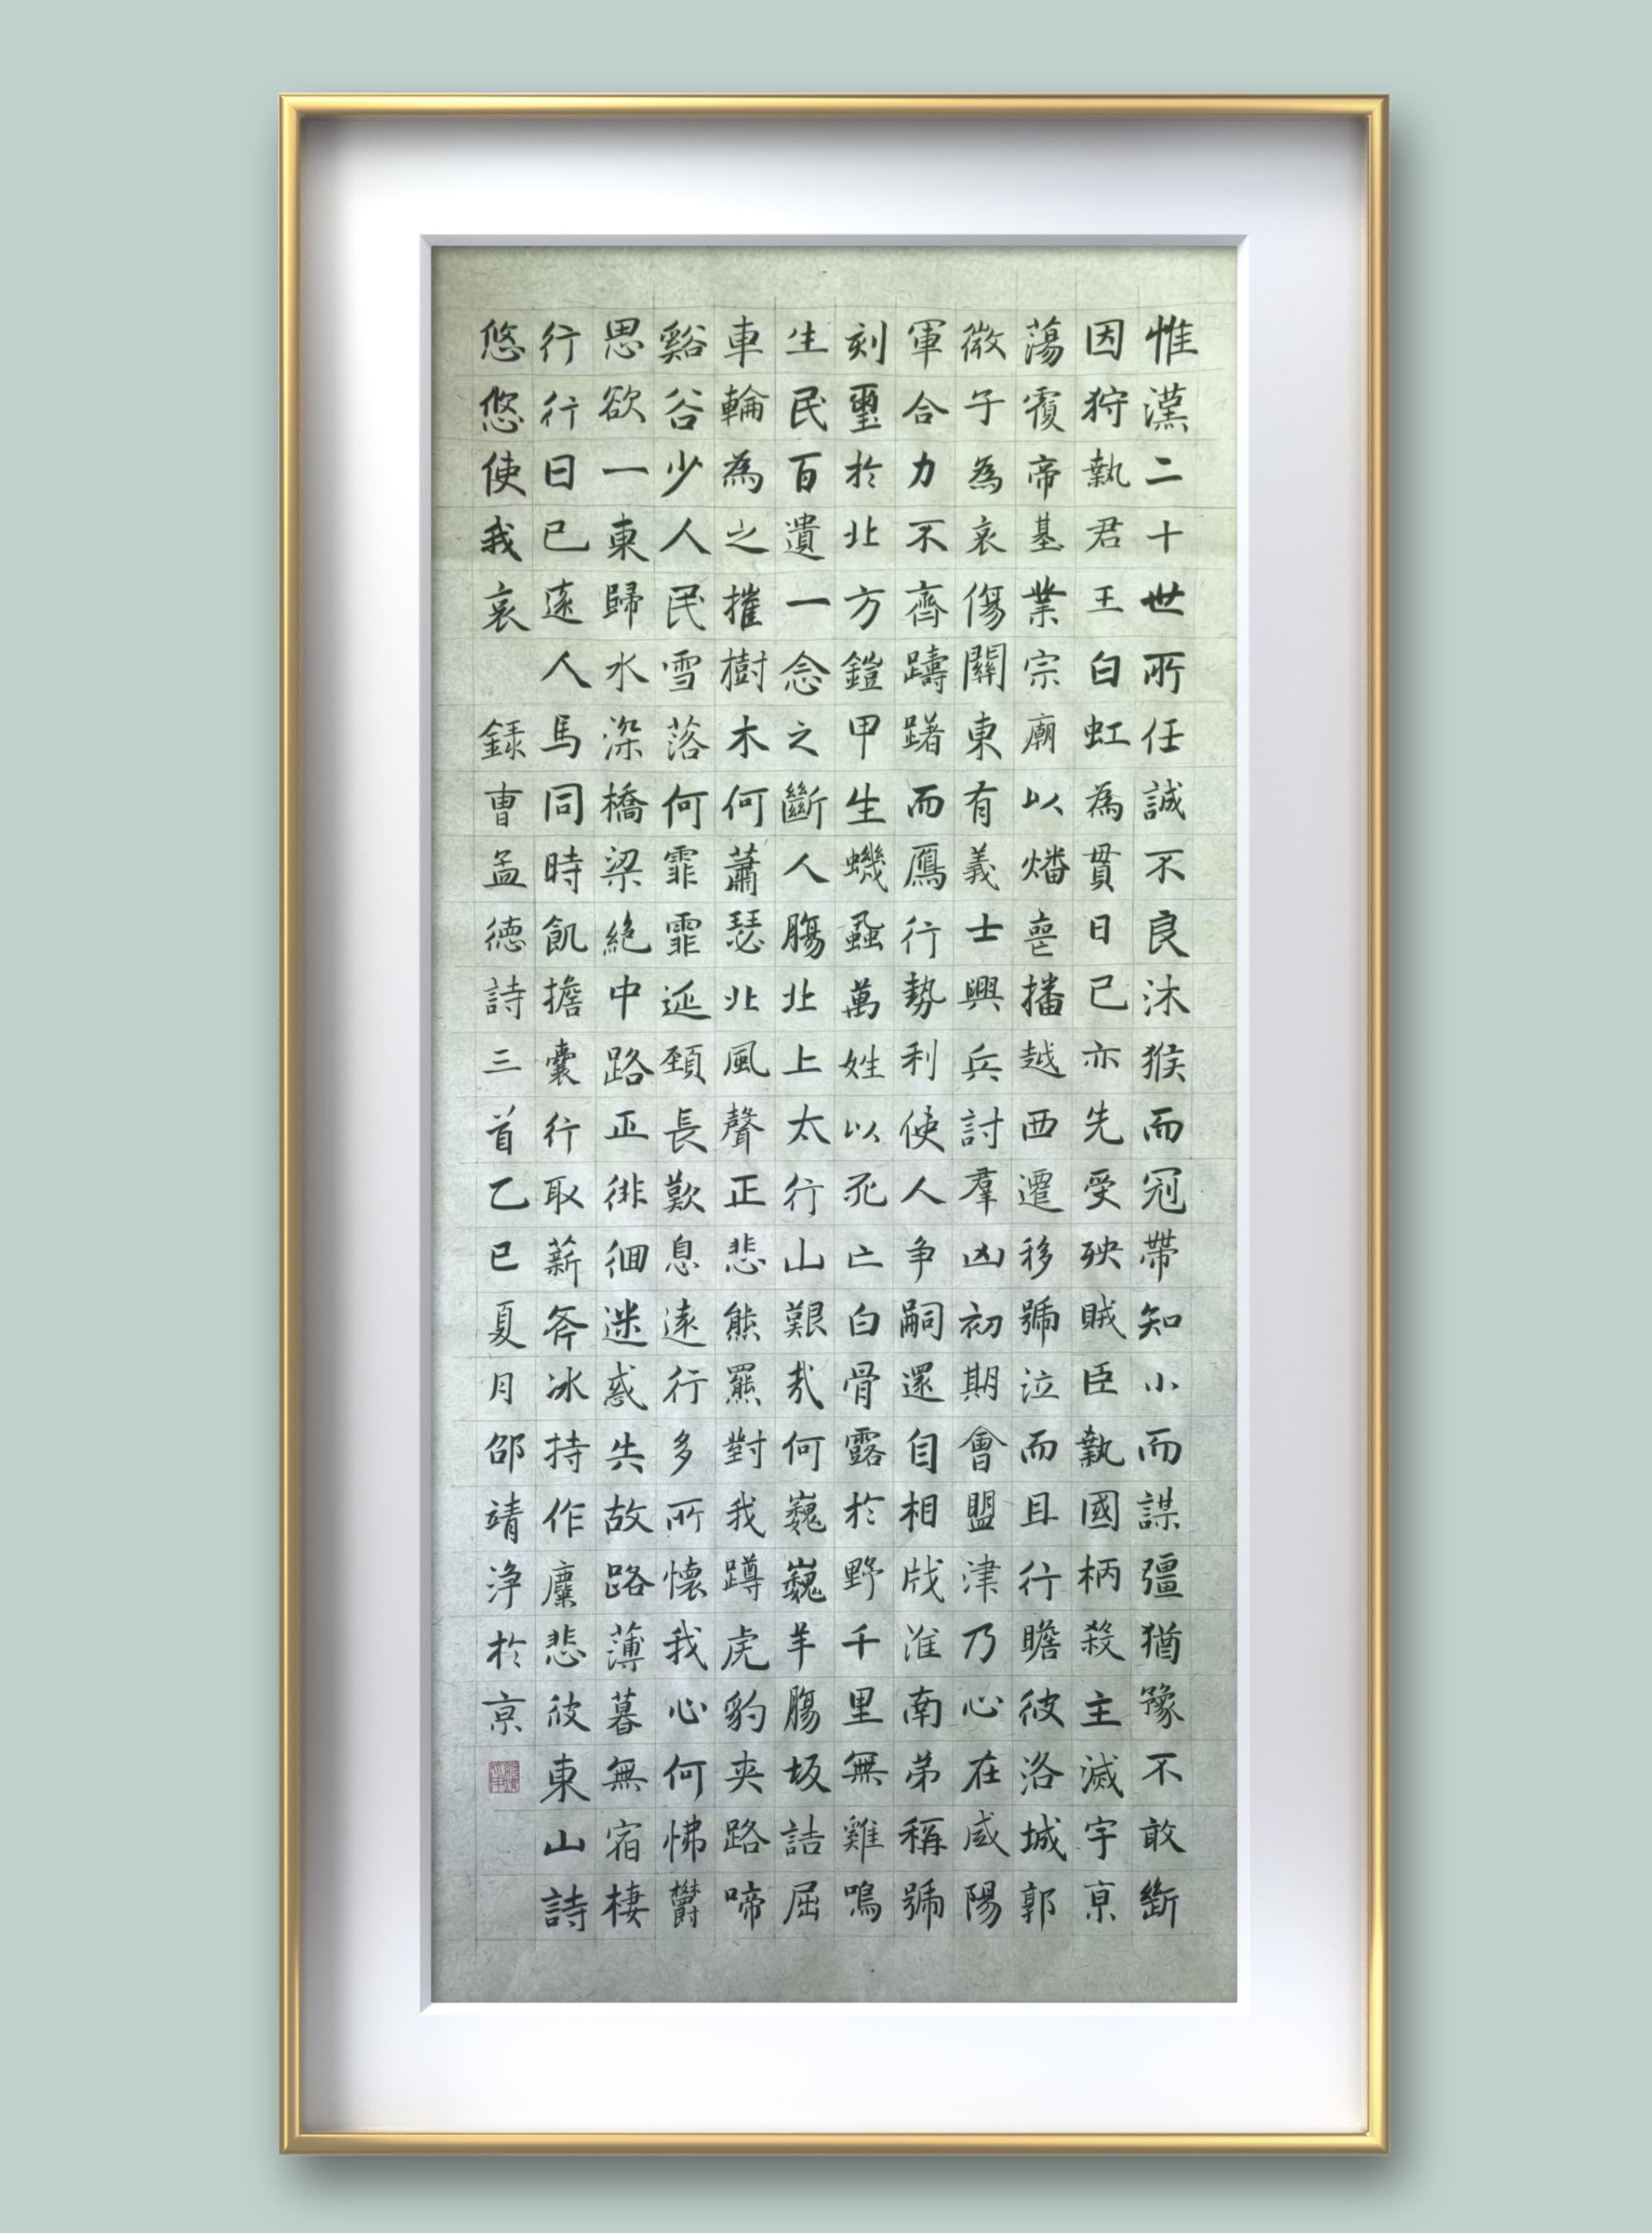 惟漢二十世所任誠不良沐猴而冠帶知小而謀彊猶豫不敢斷
因狩執君王白虹為貫日己亦先受殃賊臣執國柄殺主滅宇京
蕩覆帝基業宗廟以燔喪播越西遷移號泣而且行瞻彼洛城郭
微子為哀傷關東有義士興兵討羣凶初期會盟津乃心在咸陽
軍合力不齊躊躇而鴈行勢利使人争嗣還自相戕淮南弟稱號
刻璽於北方鎧甲生蟣蝨萬姓以死亡白骨露於野千里無雞鳴
生民百遺一念之斷人腸北上太行山艱哉何巍巍羊腸坂詰屈
車輪為之摧樹木何蕭瑟北風聲正悲熊羆對我蹲虎豹夾路啼
谿谷少人民雪落何霏霏延頸長歎息遠行多所懷我心何怫鬱
思欲一東歸水深橋梁絕中路正徘徊迷惑失故路薄暮無宿棲
行行日已遠人馬同時飢擔囊行取薪斧冰持作麋悲彼東山詩
悠悠使我哀 錄曹孟德詩三首乙巳夏月邵靖浄於京